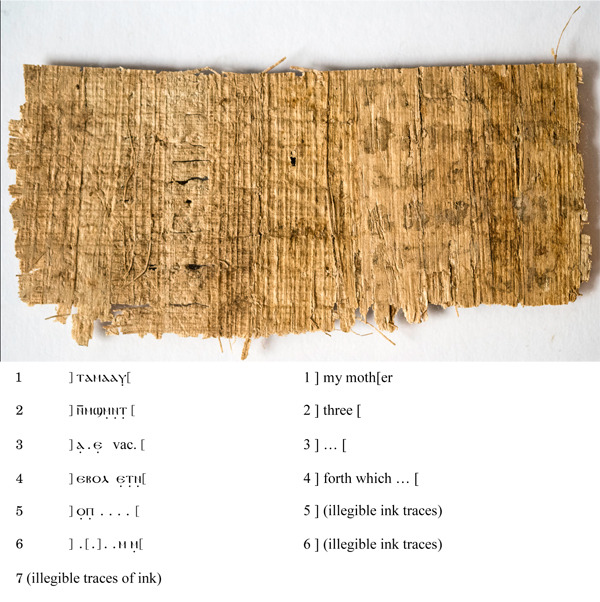 1 ] ⲧⲁⲙⲁⲁⲩ̣[ 1 ] my moth[er
2 ] [ 2 ] three [
3 ] ⲁ̣ . ⲉ̣ vac. [ 3 ] … [
4 ] ⲉⲃⲟⲗ ⲉ̣ⲧ̣ⲛ̣[ 4 ] forth which … [
5 ] ⲟ̣ⲡ̣ . . . . [ 5 ] (illegible ink traces)
6 ] .[.]. . [ 6 ] (illegible ink traces)
7 (illegible traces of ink)